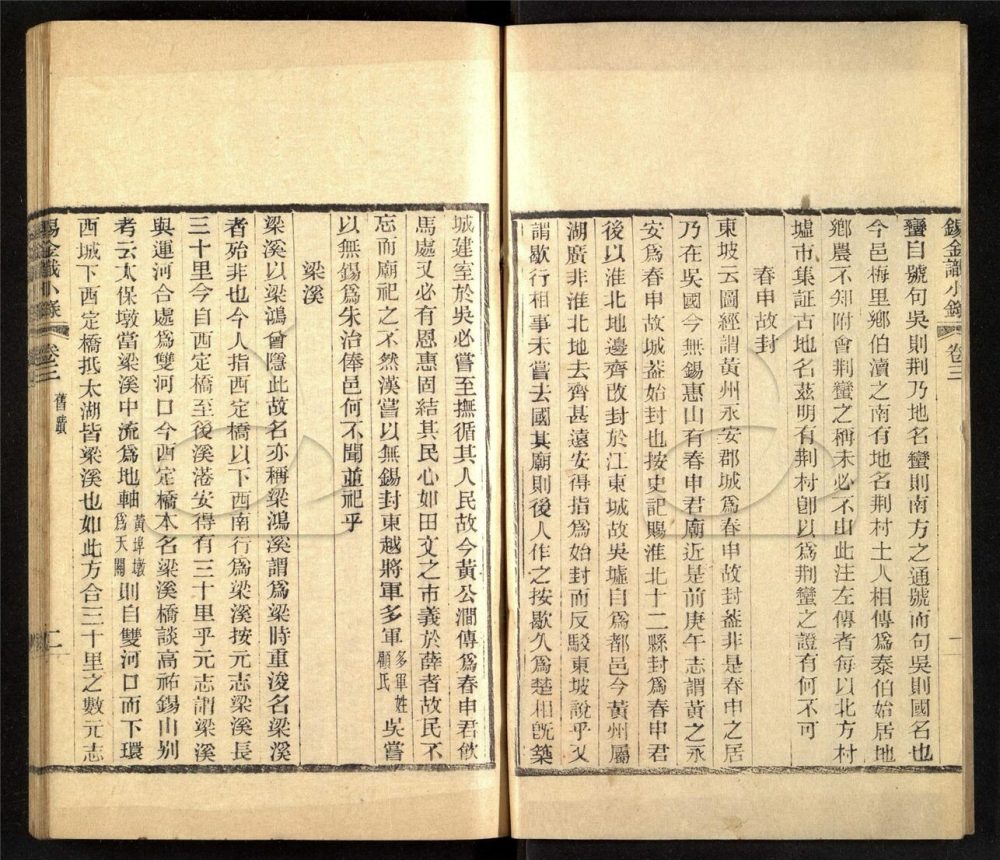 錫金識小錄 卷三 一
蠻自號句吳則荆乃地名蠻則南方之通號而句吳則國名也
今邑梅里鄉伯瀆之南有地名荆村土人相傳爲泰伯始居地
鄉農不知附會荆蠻之稱未必不由此注左傳者每以北方村
墟市集証古地名茲明有荆村卽以爲荆蠻之證有何不可
春申故封
東坡云圖經謂黃州永安郡城爲春申故封葢非是春申之居
乃在吳國今無錫惠山有春申君廟近是前庚午志謂黃之永
安爲春申故城葢始封也按史記賜淮北十二縣封爲春申君
後以淮北地邊齊改封於江東城故吳墟自爲都邑今黃州屬
湖廣非淮北地去齊甚遠安得指爲始封而反駁東坡說乎又
謂歇行相事未嘗去國其廟則後人作之按歇久爲楚相旣築
城建室於吳必嘗至撫循其人民故今黃公澗傳爲春申君飲
馬處又必有恩惠固結其民心如田文之市義於薛者故民不
忘而廟祀之不然漢嘗以無錫封東越將軍多軍多軍姓顧氏吳嘗
以無錫爲朱治俸邑何不聞並祀乎
梁溪
梁溪以梁鴻會隱此故名亦稱梁鴻溪謂爲梁時重浚名梁溪
者殆非也今人指西定橋以下西南行爲梁溪按元志梁溪長
三十里今自西定橋至後溪港安得有三十里乎元志謂梁溪
與運河合處爲雙河口今西定橋本名梁溪橋談高祐錫山別
考云太保墩當梁溪中流爲地軸黃埠墩爲天關則自雙河口而下環
西城下西定橋抵太湖皆梁溪也如此方合三十里之數元志
錫金識小錄 卷三 舊蹟 二